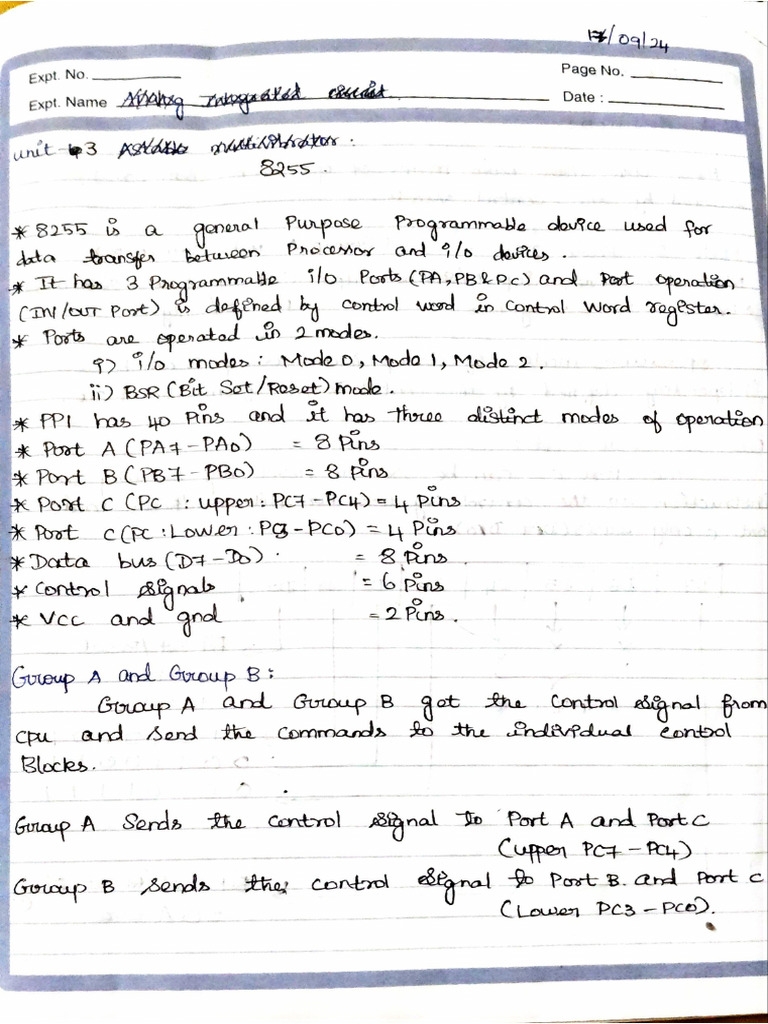 17/09/24
Expt. No.
Page No.
Expt. Name Analog Integrated circuit
Date :
unit - 3 Astable multivibrator :
8255 .
* 8255 is a general Purpose Programmable device used for
data transfer between Processor and i/o devices .
* It has 3 Programmable i/o Ports (PA, PB & PC) and Port operation
(IN/OUT Port) is defined by control word in control word register.
* Ports are operated in 2 modes.
i) i/o modes : Mode 0, Mode 1, Mode 2 .
ii) BSR (Bit Set/Reset) mode .
* PPI has 40 Pins and it has three distinct modes of operation
* Port A (PA7 - PA0) = 8 Pins
* Port B (PB7 - PB0) = 8 Pins
* Port C (PC : upper : PC7 - PC4) = 4 Pins
* Port C (PC : Lower : PC3 - PC0) = 4 Pins
* Data bus (D7 - D0) . = 8 Pins
* control signals = 6 Pins
* Vcc and gnd = 2 Pins .
Group A and Group B :
Group A and Group B get the control signal from
cpu and send the commands to the individual control
Blocks.
Group A Sends the control signal to Port A and Port C
(upper PC7 - PC4)
Group B sends the control signal to Port B. and Port C
(Lower PC3 - PC0).